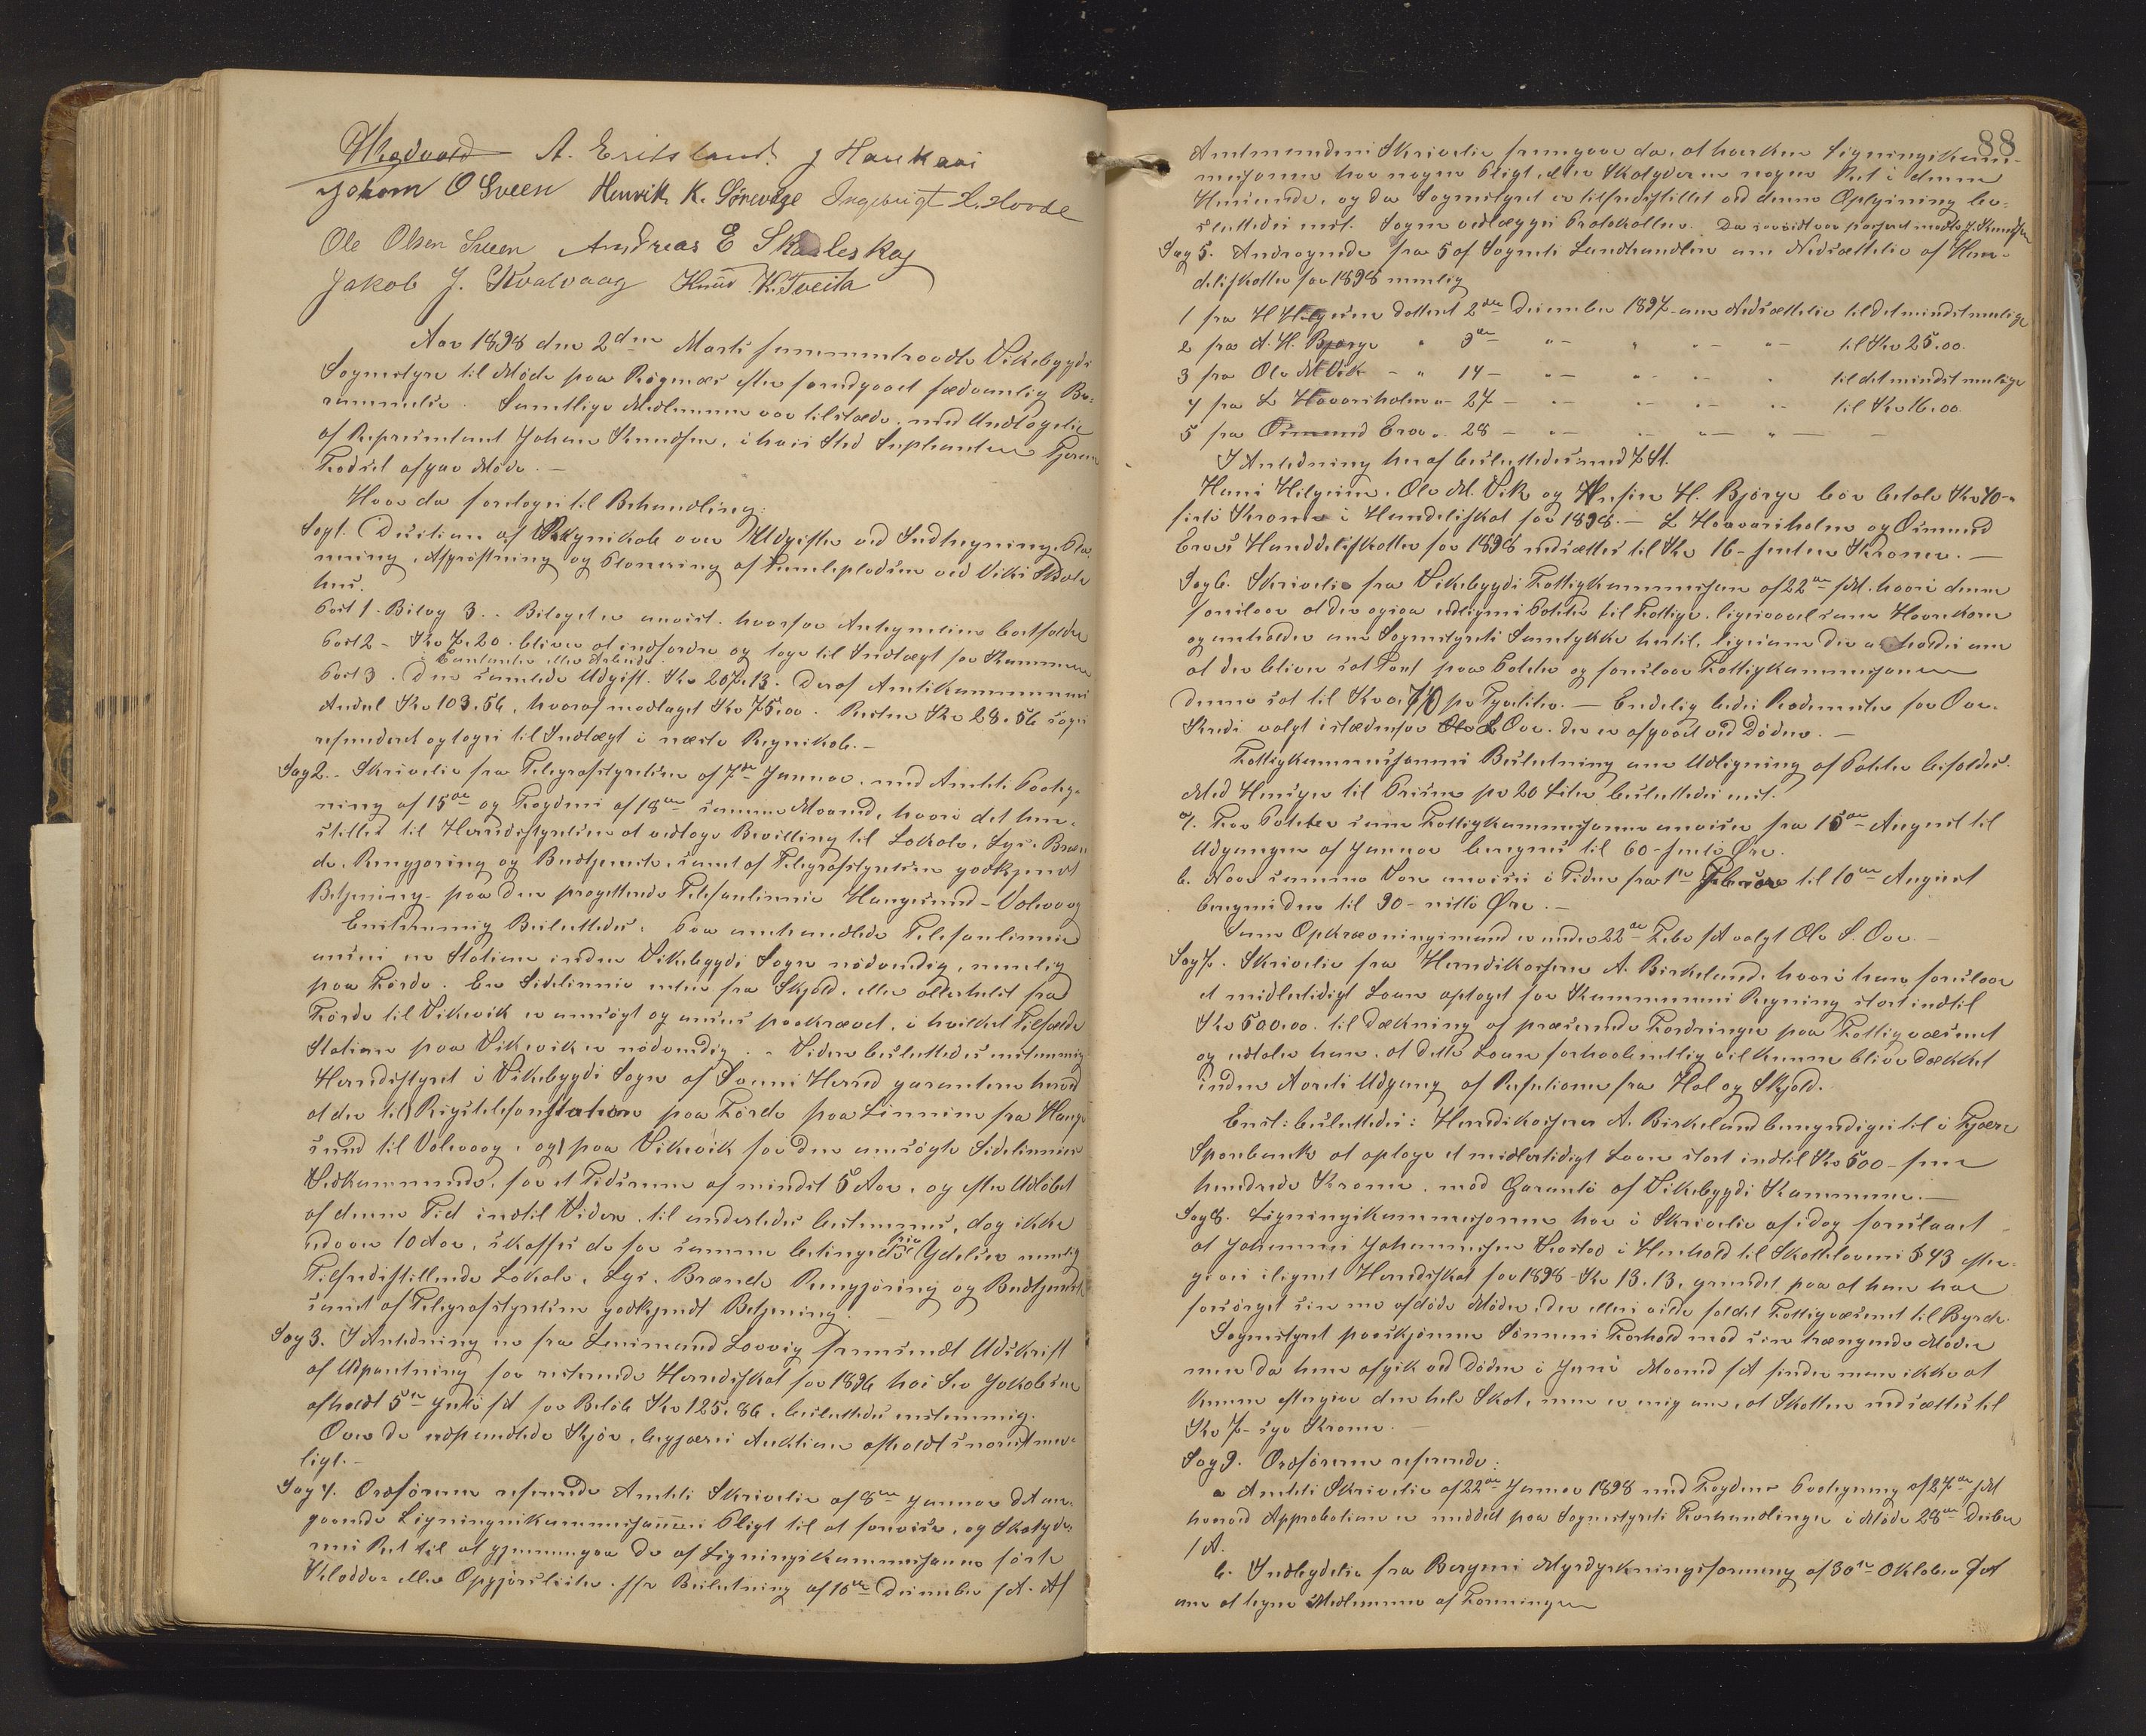 A. Eritsland. J Haukaas
Johan O Sveen Henrik K. Sörevåge Ingebrigt H. Hovde
Ole Olsen Sveen Andreas E Skarleskog
Jakob J. Kvalvaag Knud K. Tveita
Aar 1898 den 2den Marts sammentraadte Vikebygds
Sognestyre til Møde paa Røgenæs efter foregaaet sædvanlig Be-
rammelse. Samtlige Medlemmer var tilstæde, med Undtagelse
af Repræsentant Johan Knudsen, i hvis Sted Suplenten
afgav Møde. –
Hvor da foretoges til Behandling:
Sag 1. Decision af Regnskab over Udgifter ved Indhegning, Pla-
nering, Afgrøftning og Planering af Tomtepladsen ved Viks Skole-
hus.
Post 1. Bilag 3. – Bilaget er anvist. hvorfor Antegnelsen bortfalder
Post 2 – Kr 7.20. bliver at indfordre og tage til Indtægt for Kommunen
i Contanter eller Arbeide.
Post 3. Den samlede Udgift. Kr 207.13. Deraf Amtskommunens
Andel Kr 103.56, hvoraf modtaget Kr 75.00. Resten Kr 28.56 søges
refunderet og tages til Indtægt i næste Regnskab. –
Sag 2. – Skrivelse fra Telegrafstyrelsen af 7de Januar. med Amtets Paateg-
ning af 15de og Fogdens af 18de samme Maaned, hvori det hen-
stilles til Herredsstyrelsen at vedtage Bevilling til Lokale, Lys, Bræn-
de, Rengjøring og Budtjeneste, samt af Telegrafstyrelsen godkjendt
Betjening paa den projekterede Telefonlinie Haugesund – Ølsvaag
Enstemmig Besluttedes: Paa omhandlede Telefonlinie
ansees en Station inden Vikebygds Sogn nødvendig, nemlig
paa Førde. En Sidelinie enten fra Skjold, eller allerhelst fra
Førde til Vikevik er ansøgt og ansees paakrævet, i hvilket Tilfælde
Station paa Vikevik er nødvendig. – Videre besluttedes enstemmig
Herredsstyret i Vikebygds Sogn af Sveens Herred garanterer herved
at der til Rigstelefonstation paa Førde paa Linnien fra Hauge-
sund til Ølsvaag, og paa Vikevik for den ansøgte Sidelinnies
Vedkommende, for et Tidsrum af mindst 5 Aar, og efter Udløbet
af denne Tid indtil Videre, til anderledes bestemmes, dog ikke
udover 10 Aar, skaffes de for samme betingede frie Ydelser nemlig
Tilfredsstillende Lokale, Lys, Brænde Rengjøring og Budtjeneste
samt af Telegrafstyrelsen godkjendt Betjening. –
Sag 3. I Anledning en fra Lensmand Lovvig fremsendt Udskrift
af Udpantning for resterende Herredsskat for 1896 hos Jakobsen
afholdt 5te Juli f A for Beløb Kr 125.86, besluttedes enstemmig.
Over de udpantede Kjør, begjæres Auktion afholdt snarest mu-
ligt. –
Sag 4. Ordføreren refererede Amtets Skrivelse af 8de Januar d A an-
gaaende Ligningskommissionens Pligt til at forevise, og Skatyder-
nes Ret til at gjennemgaa de af Ligningskommissionen førte
Kladde- eller Opgjørslister. jfr Beslutning af 10de December f A. Af
88
Amtmandens Skrivelse fremgaar da, at hverken Ligningskom-
missionen har nogen Pligt, eller Skatyderne nogen Ret i denne
Henseende, og da Sognestyret er tilfredsstillet ved denne Oplysning be-
sluttedes enst. Sagen vedlægges Protokollen.
Sag 5. Andragende fra 5 af Sognets Landhandlere om Nedsættelse af Han-
delsskatten for 1898 nemlig
1 fra H Helgesen datteret 2den December 1897 om Nedsættelse til det mindst mulige
2 fra A. H. Bjørge " 3de " – " – " – til Kr 25.00.
3 fra Ole M Vik – " 14 – " – " – " til det mindst mulige
4 fra L Havarsholm " – 27 – " – " – " til Kr 16.00.
5 fra Osmund Eroe " 28 – " – " – " –
I Anledning heraf besluttedes med 7 St.
Hans Helgesen, Ole M. Vik og H. Bjørge bør betale Kr 40 –
førti Kroner i Handelsskat for 1898. – L Havarsholm og Osmund
Eroes Handelsskatter for 1898 nedsættes til Kr 16 – sexten Kroner. –
Sag 6. Skrivelse fra Vikebygds Fattigkommission af 22de f M. hvori denne
foreslaar at der ogsaa udlignes Poteter til Fattige, ligesaavel som Havrekorn
og anholder om Sognestyrets Samtykke hertil, ligesom der anholdes om
at der bliver sat Taxt paa Poteter og foreslaar Fattigkommissionen
denne sat til Kr 0.70 pr . – Endelig bedes Rodemester for Ove-
Kreds valgt istædenfor Ole L Ove. der er afgaaet ved Døden. –
Fattigkommissionens Beslutning om Udligning af Poteter bifaldes.
Med Hensyn til Prisen pr 20 Liter besluttedes enst.
a. For Poteter som Fattigkommissionen anviser fra 15de August til
Udgangen af Januar beregnes til 60 – sexti Øre.
b. Naar samme Vare anvises i Tiden fra 1ste Februar til 10de August
beregnes den til 90 – nitti Øre. –
Som Opkrævningsmand er under 22de Febr f A valgt Ole S. Ove. –
Sag 7. Skrivelse fra Herredskasserer A. Birkeland, hvori han foreslaar
et midlertidigt Laan optaget for Kommunens Regning stort indtil
Kr 500.00. til Dækning af presserende Fordringer paa Fattigvæsenet
og udtaler han, at dette Laan forhaabentlig vil kunne blive dækket
inden Aarets Udgang af Refusioner fra Hol og Skjold.
Enst: besluttedes: Herredskasserer A. Birkeland bemyndiges til i Fjære
Sparebank at optage et midlertidigt Laan stort indtil Kr 500 – fem
hundrede Kroner, mod Garanti af Vikebygds Kommune. –
Sag 8. Ligningskommissionen har i Skrivelse af idag foreslaaet
at Johannes Johannessen i Henhold til Skatteloven § 43 efter-
gives ilignet Herredsskat for 1898 – Kr 13.13, grundet paa at han har
forsørget sin nu afdøde Moder, der ellers vilde faldet Fattigvæsenet til Byrde.
Sognestyret paaskjønner Sønnens Forhold mod sin trængende Moder
men da hun afgik ved Døden i Juni Maaned f A finder man ikke at
kunne eftergive den hele Skat, men er enig om, at Skatten nedsættes til
Kr 7 – syv Kroner. –
Sag 9. Ordføreren refererede:
a Amtets Skrivelse af 22de Januar 1898 med Fogdens Paategning af 27de f M
hvorved Approbation er meddelt paa Sognestyrets Forhandlinger i Møde 28de Decbr
f A.
b. Indbydelse fra Bergens Myrdyrkningsforening af 30te Oktober f A
om at tegne Medlemmer af Foreningen